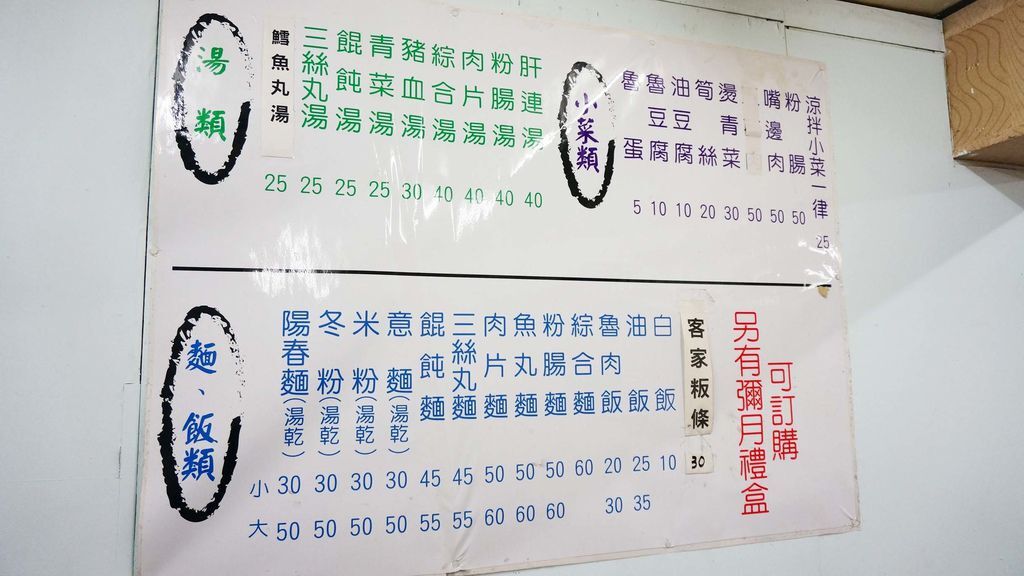 湯類
鱈魚丸湯 25
三絲丸湯 25
餛飩湯 25
青菜湯 25
豬血湯 30
綜合湯 40
肉片湯 40
粉腸湯 40
肝連湯 40
小菜類
魯蛋 5
魯豆腐 10
油豆腐 10
筍絲 20
燙青菜 30
肉 50
嘴邊肉 50
粉腸 50
涼拌小菜一律 25
麵、飯類
小
大
陽春麵(湯乾) 30 50
冬粉(湯乾) 30 50
米粉(湯乾) 30 50
意麵(湯乾) 30 50
餛飩麵 45 55
三絲丸麵 45 55
肉片麵 50 60
魚丸麵 50 60
粉腸麵 50 60
綜合麵 60
魯肉飯 20 30
油飯 25 35
白飯 10
客家粄條 30
另有彌月禮盒
可訂購